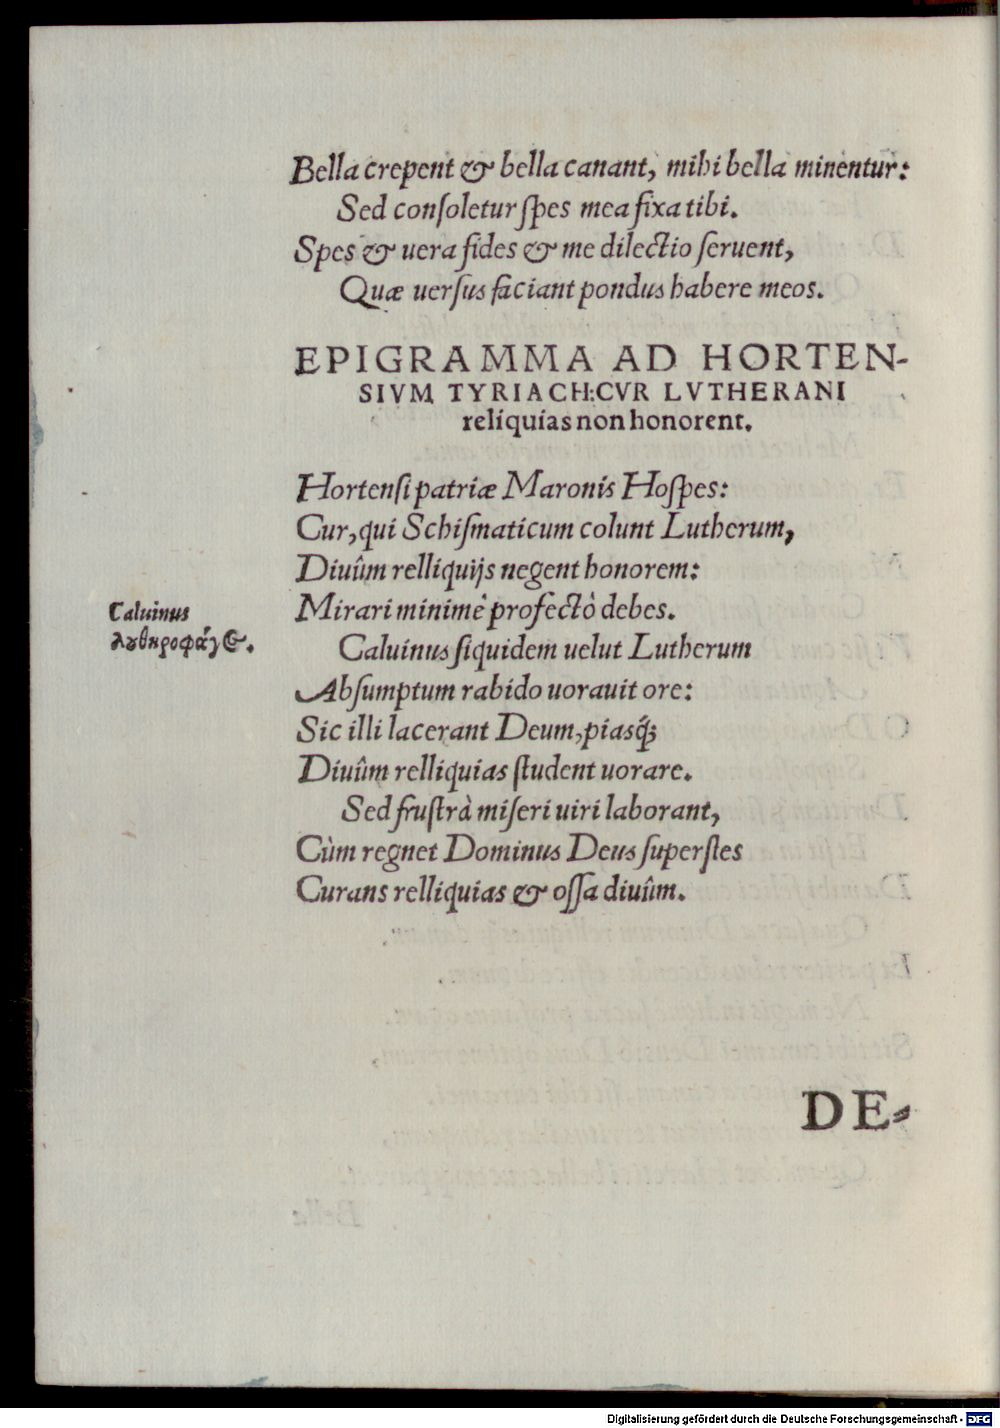 Bella crepent & bella canant, mihi bella minentur:
Sed conſoletur ſpes mea fixa tibi.
Spes & uera fides & me dilectio ſeruent,
Quæ uerſus faciant pondus habere meos.
EPIGRAMMA AD HORTEN-
SIVM TYRIACH: CVR LVTHERANI
reliquias non honorent.
Hortenſi patriæ Maronis Hoſpes:
Cur, qui Schiſmaticum colunt Lutherum,
Diuûm relliquijs negent honorem:
Mirari minimè profectò debes.
Caluinus
λυθηροφάγος.
Caluinus ſiquidem uelut Lutherum
Abſumptum rabido uorauit ore:
Sic illi lacerant Deum, piasq́;
Diuûm relliquias ſtudent uorare.
Sed fruſtrà miſeri uiri laborant,
Cùm regnet Dominus Deus ſuperſtes
Curans relliquias & oſſa diuûm.
DE-
Digitalisierung gefördert durch die Deutsche Forschungsgemeinschaft - DFG